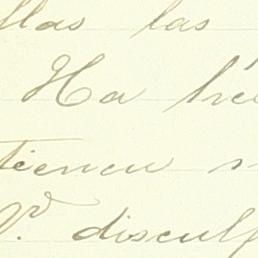 llas las
Ha hec
tienen s
V. disculp